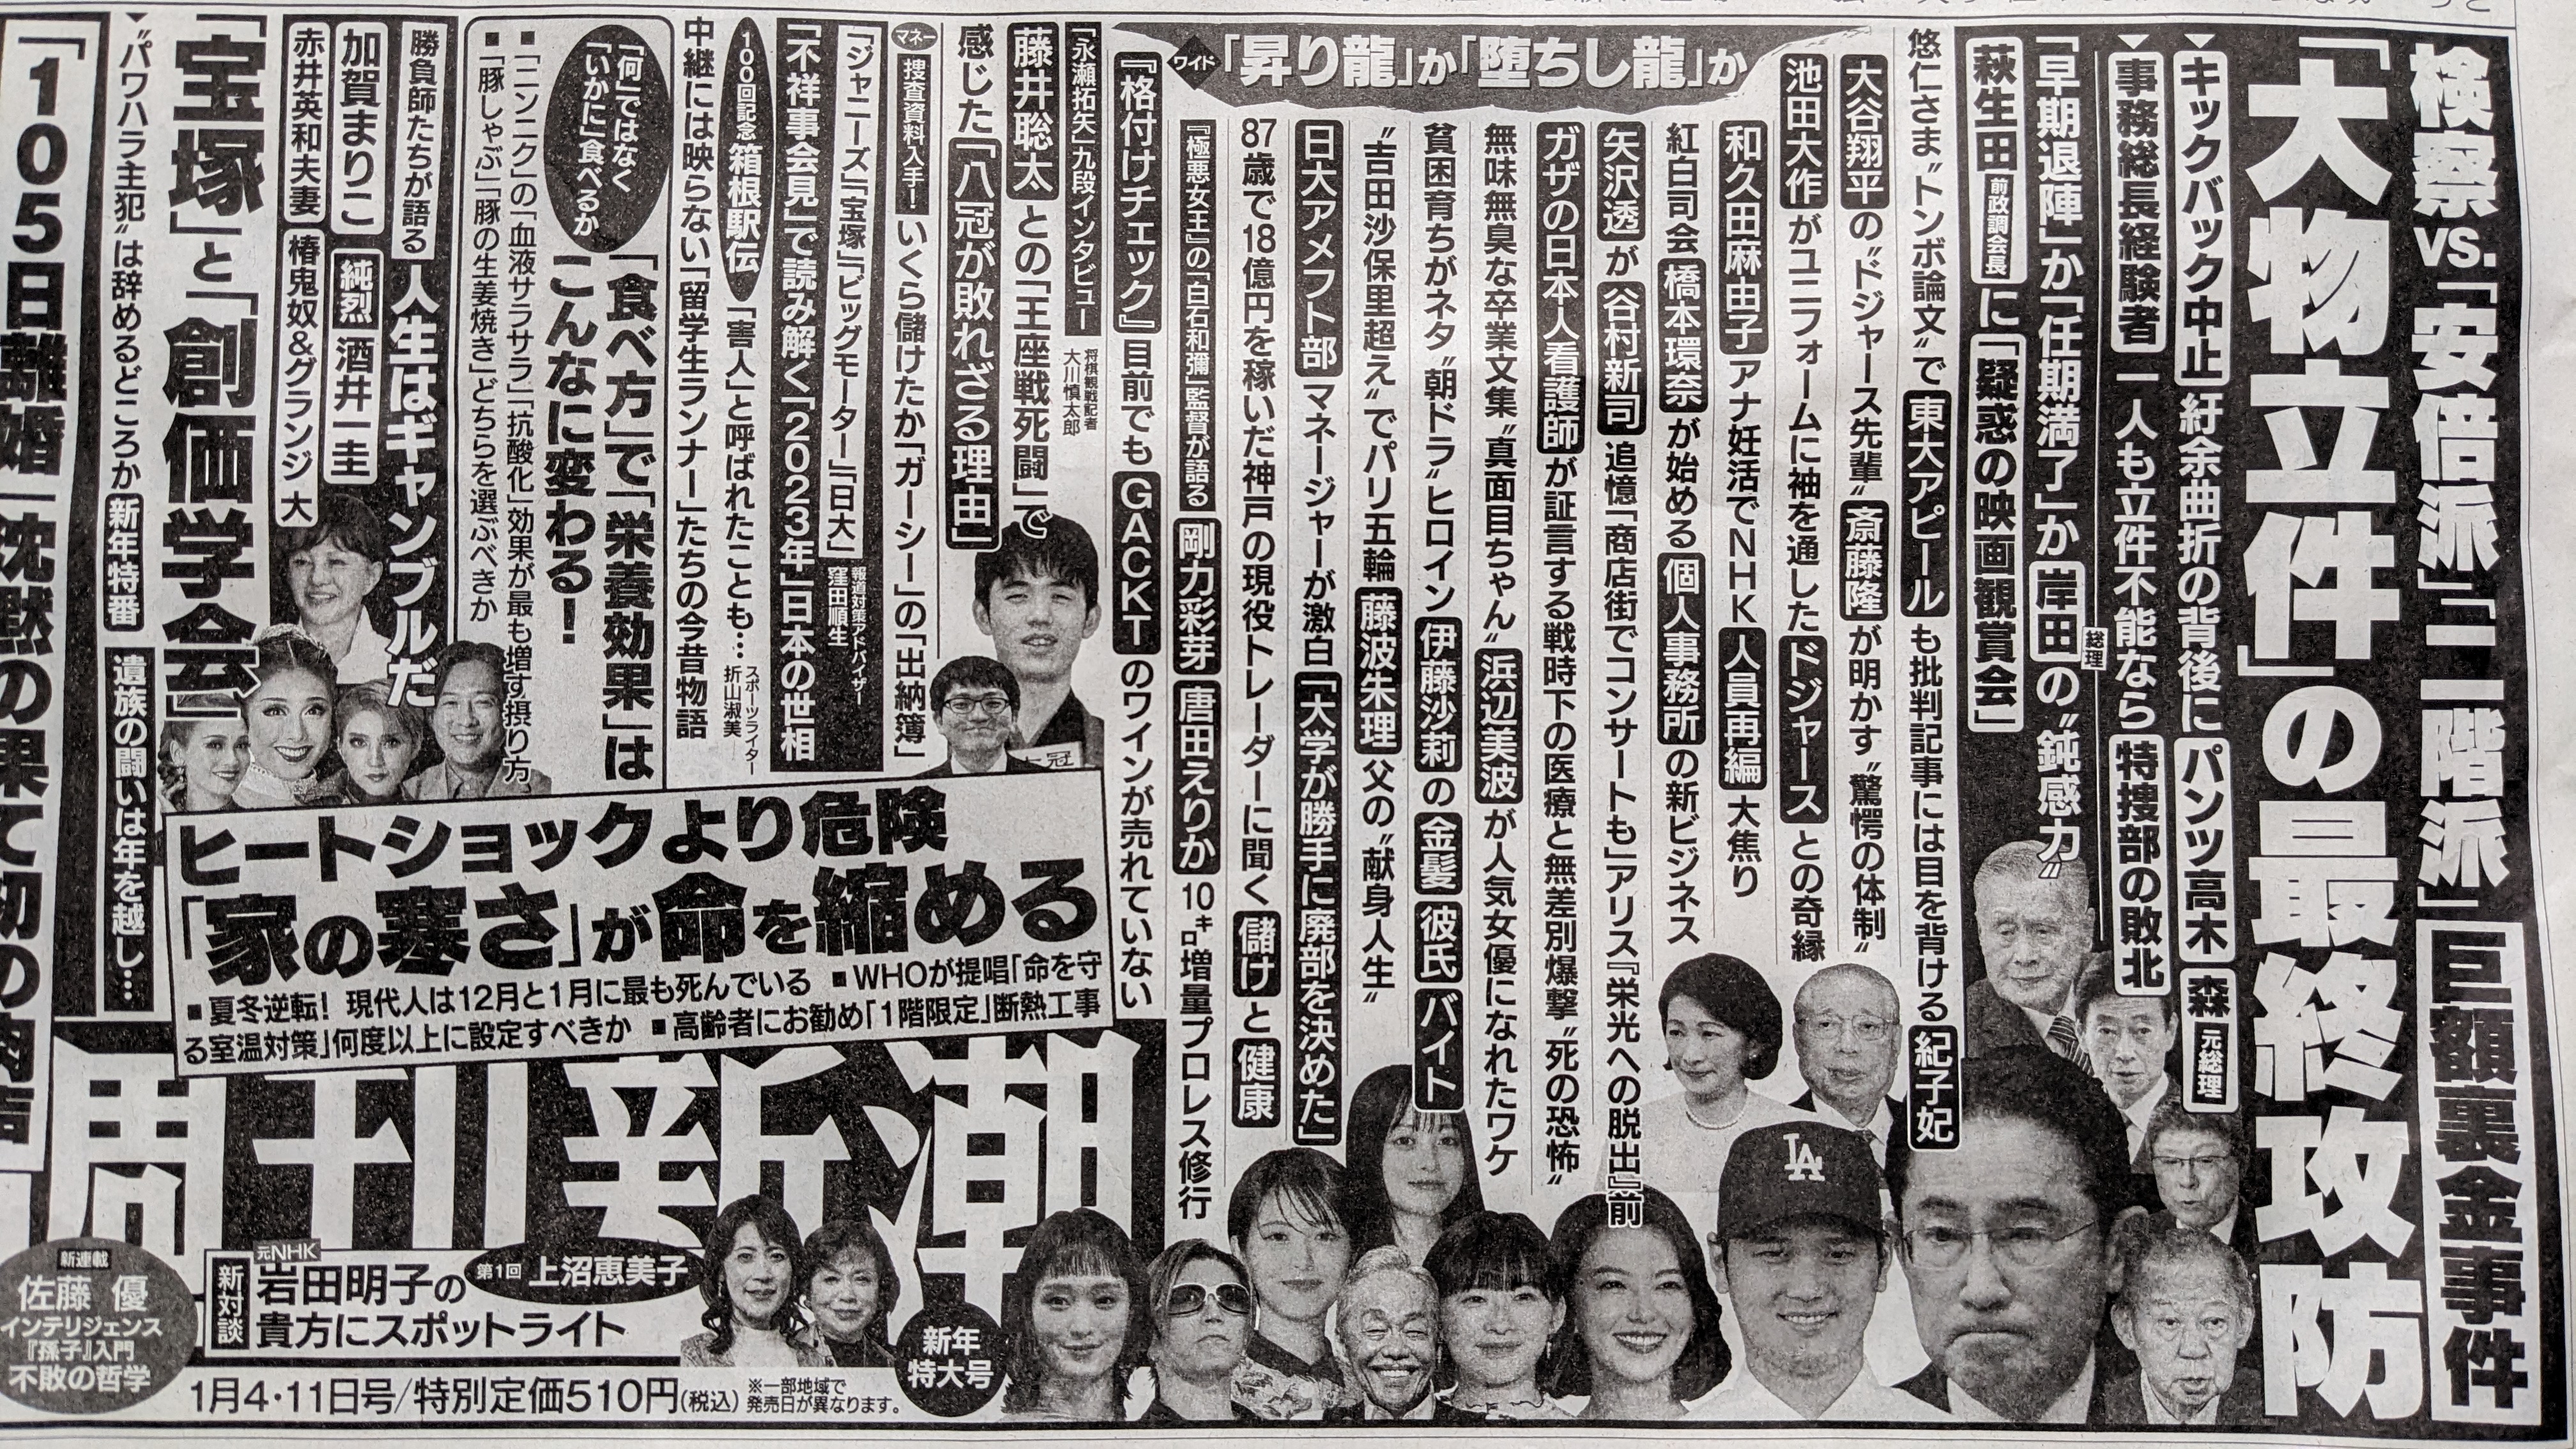 検察VS.「安倍派」「二階派」巨額裏金事件
「大物立件」の最終攻防
▼キックバック中止 紆余曲折の背後に パンツ高木 森元総理
▼事務総長経験者 一人も立件不能なら 特捜部の敗北
「早期退陣」か「任期満了」か 岸田総理の〝鈍感力〟
萩生田前政調会長に「疑惑の映画観賞会」
ワイド「昇り龍」か「堕ちし龍」か
悠仁さま〝トンボ論文〟で 東大アピール も批判記事には目を背ける 紀子妃
大谷翔平の〝ドジャース先輩〟斎藤隆が明かす〝驚愕の体制〟
池田大作がユニフォームに袖を通した ドジャース との奇縁
和久田麻由子アナ妊活でNHK 人員再編 大焦り
紅白司会 橋本環奈 が始める 個人事務所 の新ビジネス
矢沢透が谷村新司追憶「商店街でコンサートも」アリス『栄光への脱出』前
ガザの日本人看護師が証言する戦時下の医療と無差別爆撃〝死の恐怖〟
無味無臭な卒業文集〝真面目ちゃん〟浜辺美波が人気女優になれたワケ
貧困育ちがネタ〝朝ドラ〟ヒロイン伊藤沙莉の 金髪 彼氏 バイト
〝吉田沙保里超え〟でパリ五輪 藤波朱理 父の〝献身人生〟
日大アメフト部 マネージャーが激白「大学が勝手に廃部を決めた」
87歳で18億円を稼いだ神戸の現役トレーダーに聞く 儲け と 健康
『極悪女王』の「白石和彌」監督が語る 剛力彩芽 唐田えりか 10㌔増量プロレス修行
『格付けチェック』目前でも GACKT のワインが売れていない
「永瀬拓矢」九段インタビュー 将棋観戦記者 大川慎太郎
藤井聡太との「王座戦死闘」で
感じた「八冠が敗れざる理由」
マネー 捜査資料入手! いくら儲けたか「ガーシー」の「出納簿」
「ジャニーズ」「宝塚」「ビッグモーター」「日大」 報道対策アドバイザー 窪田順生
「不祥事会見」で読み解く「2023年」日本の世相
100回記念 箱根駅伝 「害人」と呼ばれたことも… スポーツライター 折山淑美
中継には映らない「留学生ランナー」たちの今昔物語
「何」ではなく「いかに」食べるか
「食べ方」で「栄養効果」は
こんなに変わる!
■「ニンニク」の「血液サラサラ」「抗酸化」効果が最も増す摂り方
■「豚しゃぶ」「豚の生姜焼き」どちらを選ぶべきか
勝負師たちが語る 人生はギャンブルだ
加賀まりこ 純烈 酒井一圭
赤井英和夫妻 椿鬼奴&グランジ大
「宝塚」と「創価学会」
▼〝パワハラ主犯〟は辞めるどころか 新年特番 遺族の闘いは年を越し…
「105日離婚」沈黙の果て初の
ヒートショックより危険
「家の寒さ」が命を縮める
■夏冬逆転! 現代人は12月と1月に最も死んでいる ■WHOが提唱「命を守
る室温対策」何度以上に設定すべきか ■高齢者にお勧め「1階限定」断熱工事
週刊新潮
新連載
佐藤 優
インテリジェンス
『孫子』入門
不敗の哲学
新対談 元NHK 岩田明子の
貴方にスポットライト
第1回 上沼恵美子
新年
特大号
1月4・11日号/特別定価510円(税込) ※一部地域で
発売日が異なります。
LA